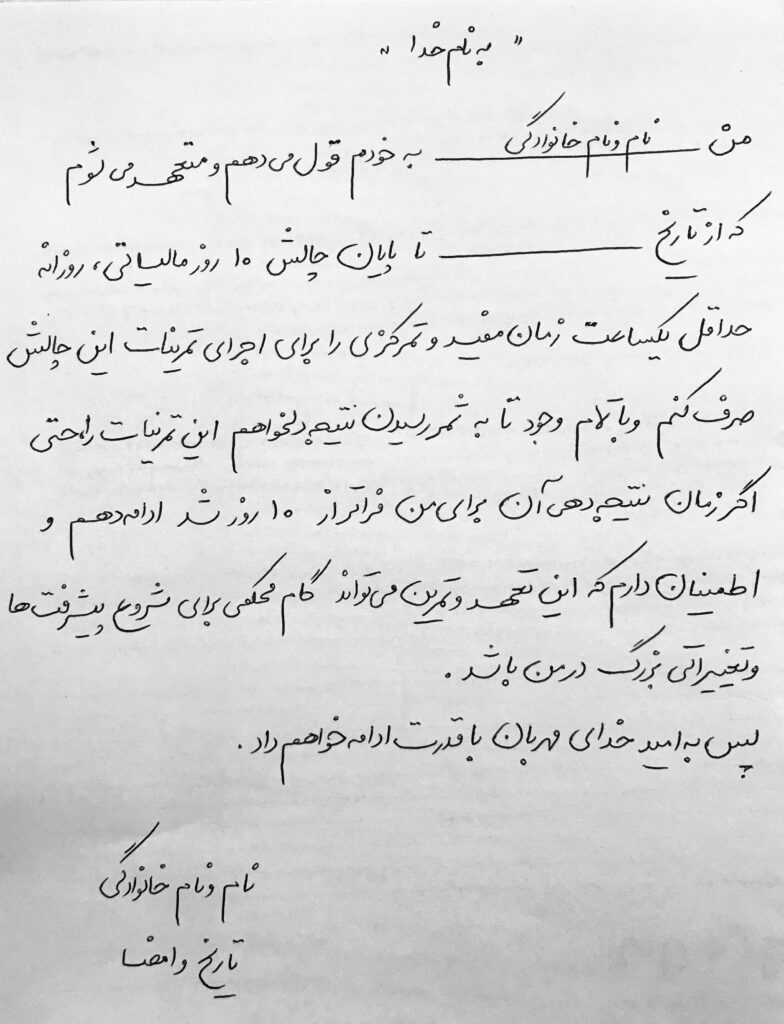 " به نام خدا "
من نام و نام خانوادگی به خودم قول می دهم و متعهد می شوم
که از تاریخ ــــــــــ تا پایان چالش ۱۰ روز مالیاتی، روزانه
حداقل یکساعت زمان مفید و تمرکزی را برای اجرای تمرینات این چالش
صرف کنم و با تمام وجود تا به ثمر رسیدن نتیجه دلخواهم این تمرینات را حتی
اگر زمان نتیجه دهی آن برای من فراتر از ۱۰ روز شد ادامه دهم و
اطمینان دارم که این تعهد و تمرین می تواند گام محکمی برای شروع پیشرفت ها
و تغییراتی بزرگ در من باشد .
پس به امید خدای مهربان با قدرت ادامه خواهم داد .
نام و نام خانوادگی
تاریخ و امضا